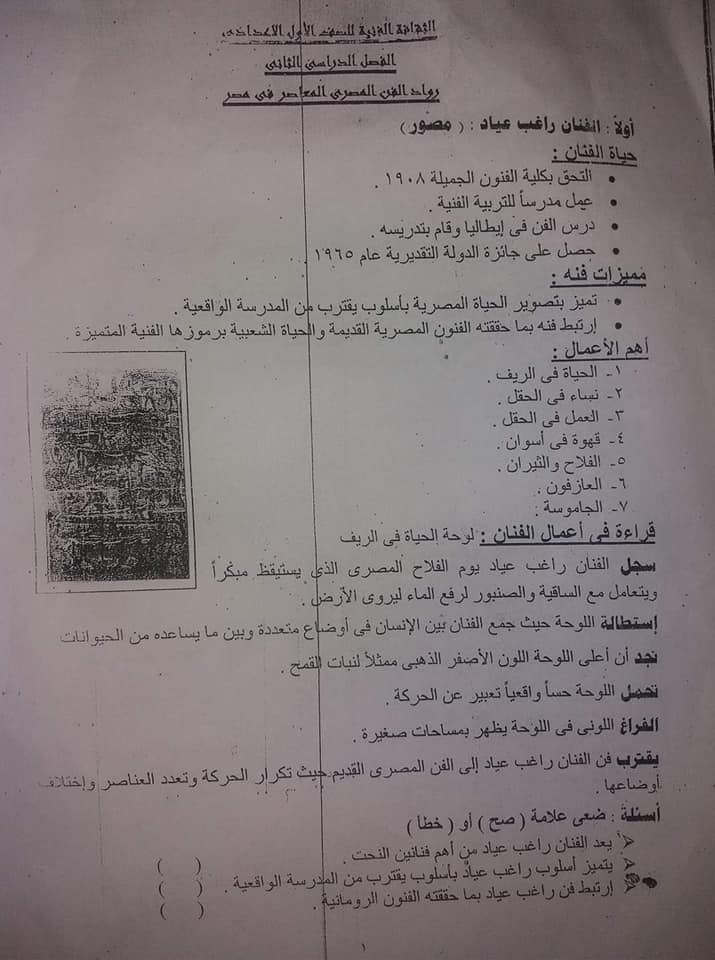 الثقافة الفنية للصف الأول الاعدادى
الفصل الدراسى الثانى
رواد الفن المصرى المعاصر فى مصر
أولاً : الفنان راغب عياد : ( مصور )
حياة الفنان :
• التحق بكلية الفنون الجميلة ١٩٠٨ .
• عمل مدرساً للتربية الفنية .
• درس الفن فى إيطاليا وقام بتدريسه .
• حصل على جائزة الدولة التقديرية عام ١٩٦٥ .
مميزات فنه :
• تميز بتصوير الحياة المصرية بأسلوب يقترب من المدرسة الواقعية .
• إرتبط فنه بما حققته الفنون المصرية القديمة والحياة الشعبية برموزها الفنية المتميزة .
أهم الأعمال :
١- الحياة فى الريف .
٢- نساء فى الحقل .
٣- العمل فى الحقل .
٤- قهوة فى أسوان .
٥- الفلاح والثيران .
٦- العازفون .
٧- الجاموسة .
قراءة فى أعمال الفنان : لوحة الحياة فى الريف
سجل الفنان راغب عياد يوم الفلاح المصرى الذى يستيقظ مبكراً
ويتعامل مع الساقية والصنبور لرفع الماء ليروى الأرض .
إستطالة اللوحة حيث جمع الفنان بين الإنسان فى أوضاع متعددة وبين ما يساعده من الحيوانات
نجد أن أعلى اللوحة اللون الأصفر الذهبى ممثلاً لنبات القمح .
تحمل اللوحة حساً واقعياً تعبير عن الحركة .
الفراغ اللونى فى اللوحة يظهر بمساحات صغيرة .
يقترب فن الفنان راغب عياد إلى الفن المصرى القديم حيث تكرار الحركة وتعدد العناصر وإختلاف
أوضاعها .
أسئلة : ضعى علامة ( صح ) أو ( خطأ )
➢ يعد الفنان راغب عياد من أهم فنانين النحت . ( )
➢ يتميز أسلوب راغب عياد بأسلوب يقترب من المدرسة الواقعية . ( )
➢ إرتبط فن راغب عياد بما حققته الفنون الرومانية . ( )
١